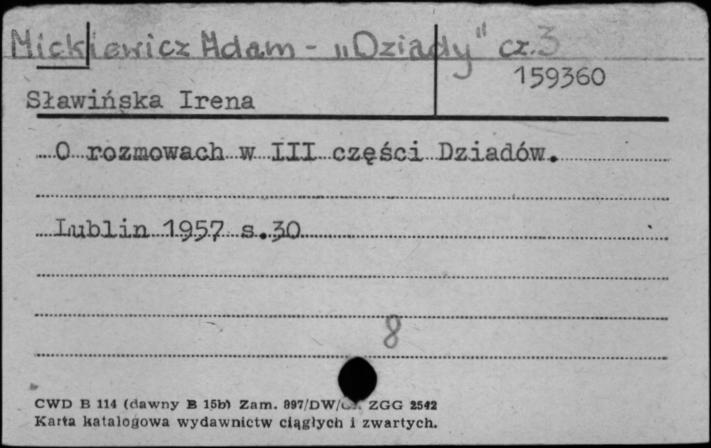 Mickiewicz Adam - „Dziady" cz.3
159360
Sławińska Irena
O rozmowach w III części Dziadów.
Lublin 1957 s.30
8
CWD B 114 (dawny B 15b) Zam. 897/DW/ ZGG 2542
Karta katalogowa wydawnictw ciągłych i zwartych.